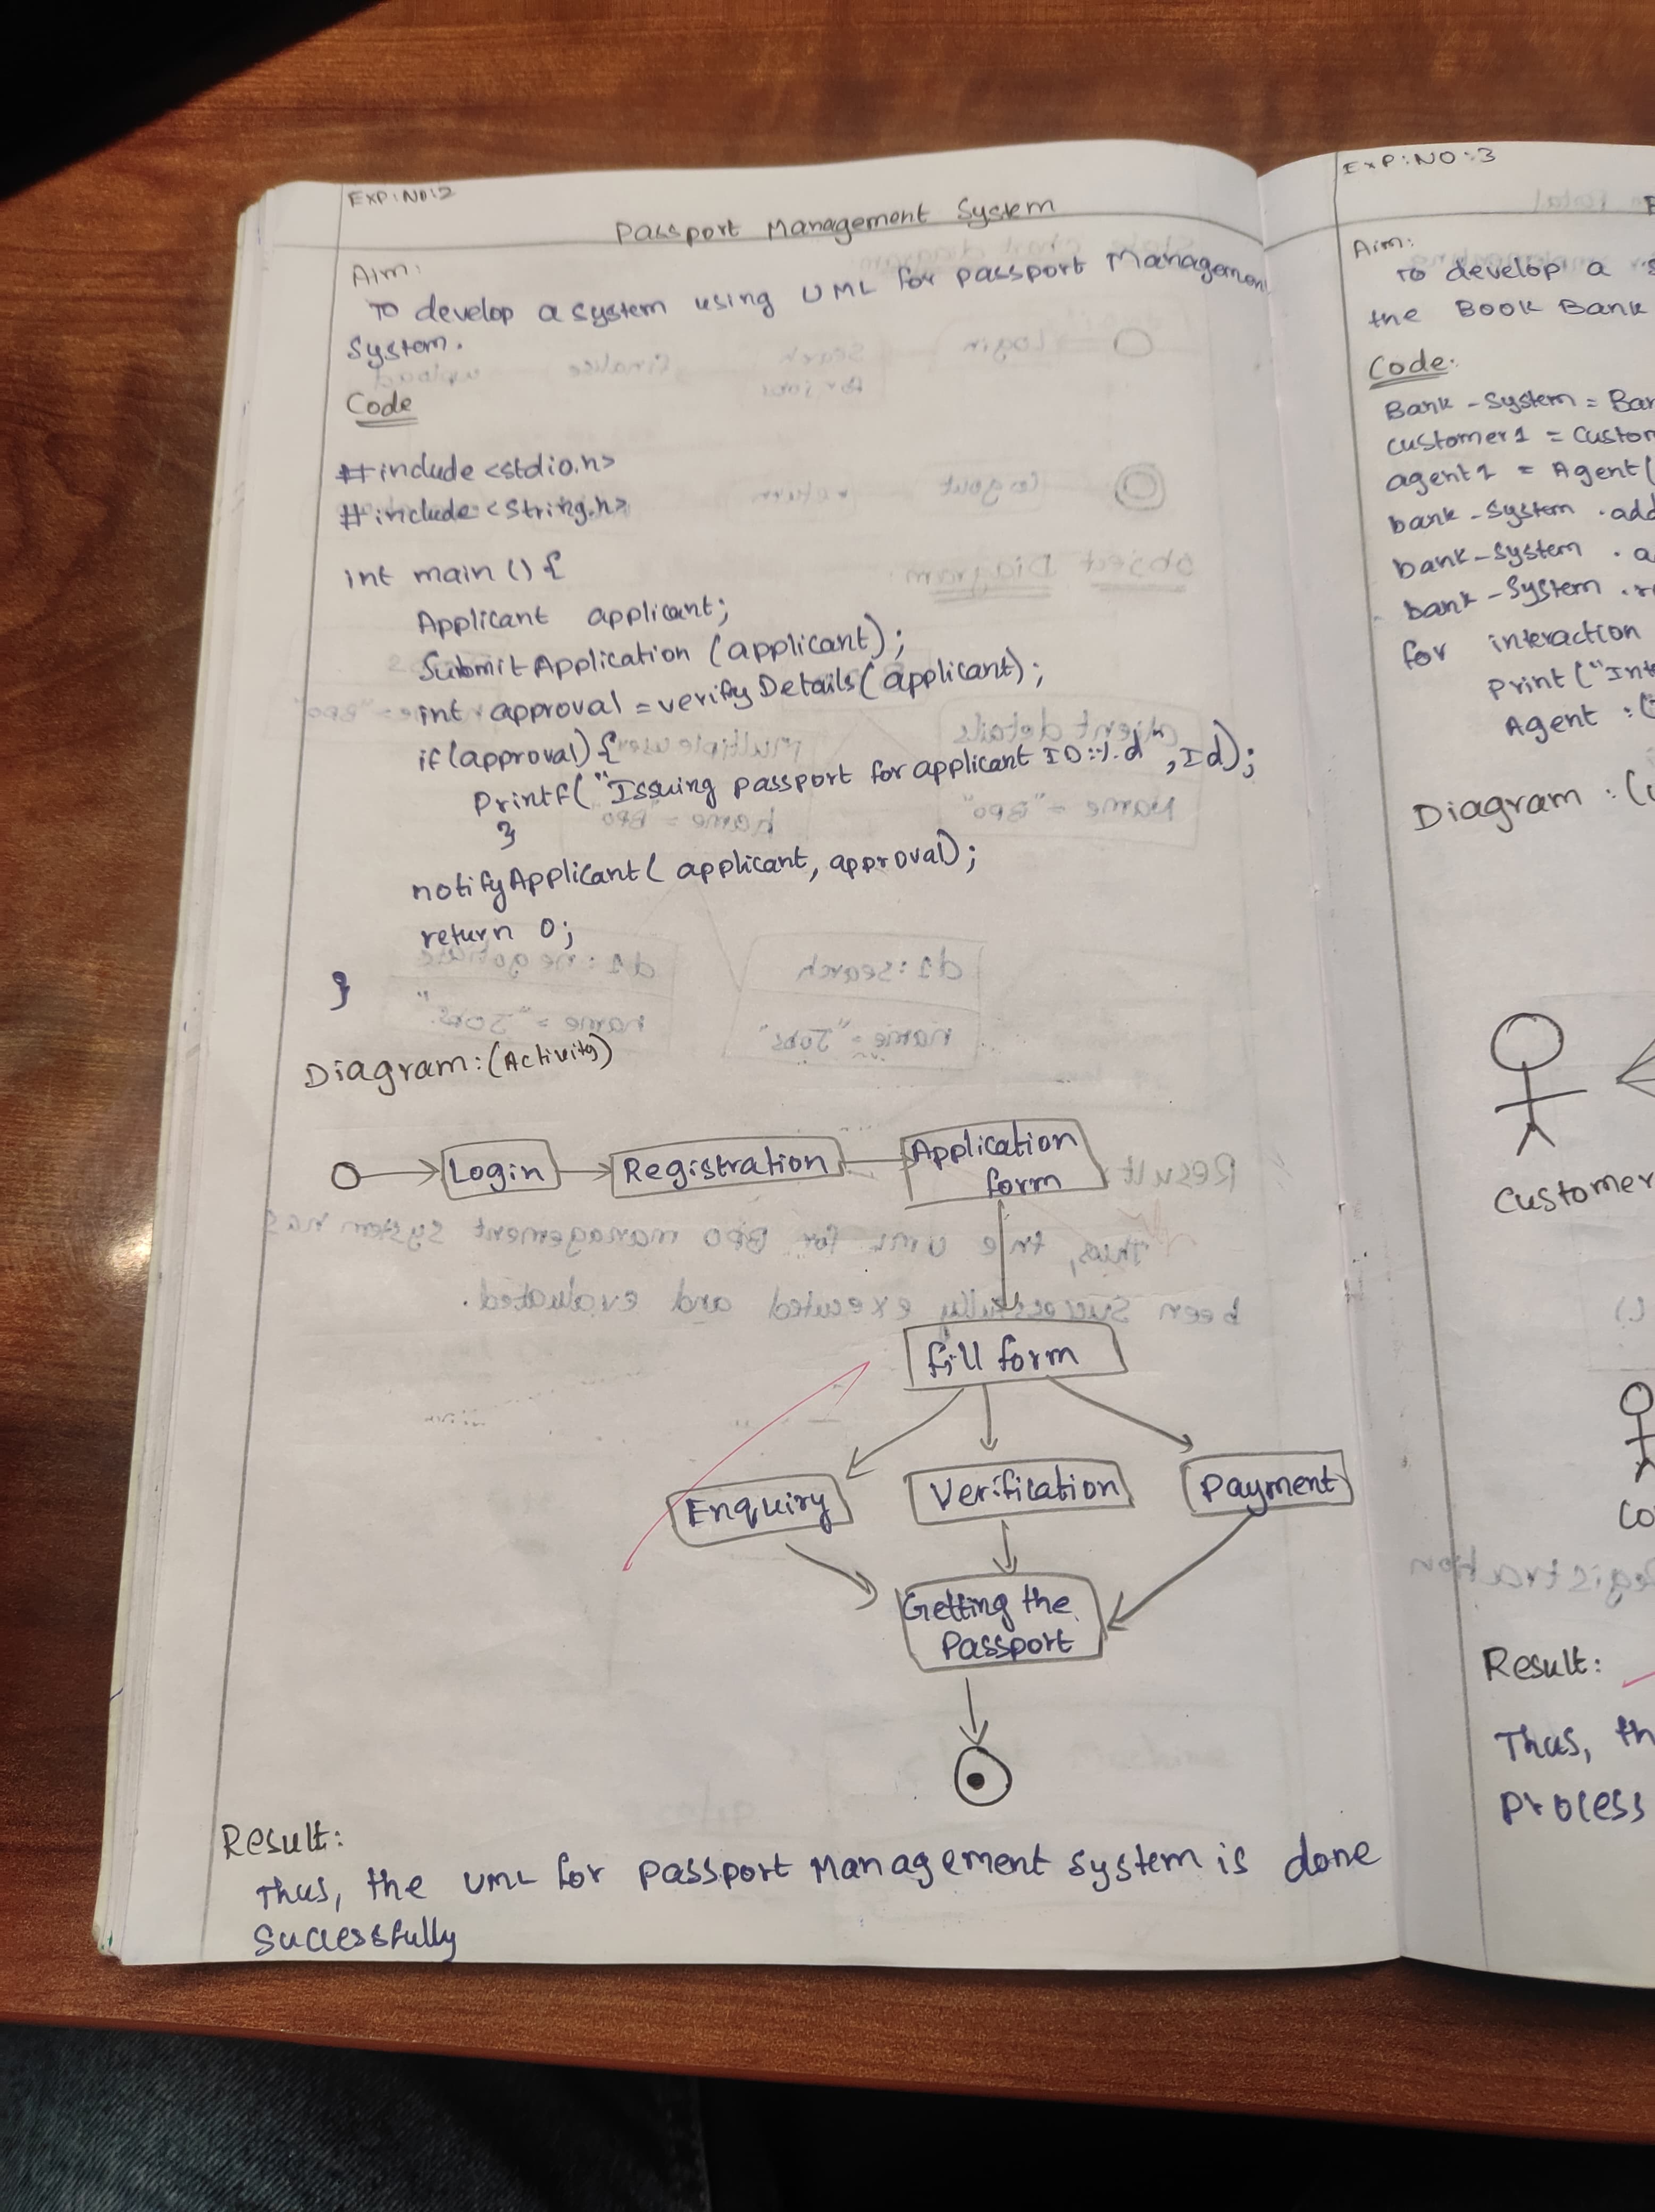 EXP:NO:2
Passport Management System
Aim:
To develop a system using UML for passport Management
System.
Code
#include <stdio.h>
#include <String.h>
int main () {
Applicant applicant;
Submit Application (applicant);
int approval = verify Details (applicant);
if (approval) {
Printf( "Issuing passport for applicant ID :%.d", Id);
}
notify Applicant ( applicant, approval);
return 0;
}
Diagram: (Activity)
Login
Registration
Application
form
fill form
Enquiry
Verification
Payment
Getting the
Passport
Result:
Thus, the UML for Passport Management system is done
Successfully
EXP:NO:3
Aim:
To develop a
the Book Bank
Code:
Bank - System =
customer1 =
agent1 = Agent(
bank - System .
bank - System .
bank - System .
for interaction
Print ("
Agent :
Diagram : (
Customer
Result:
Thus,
Process